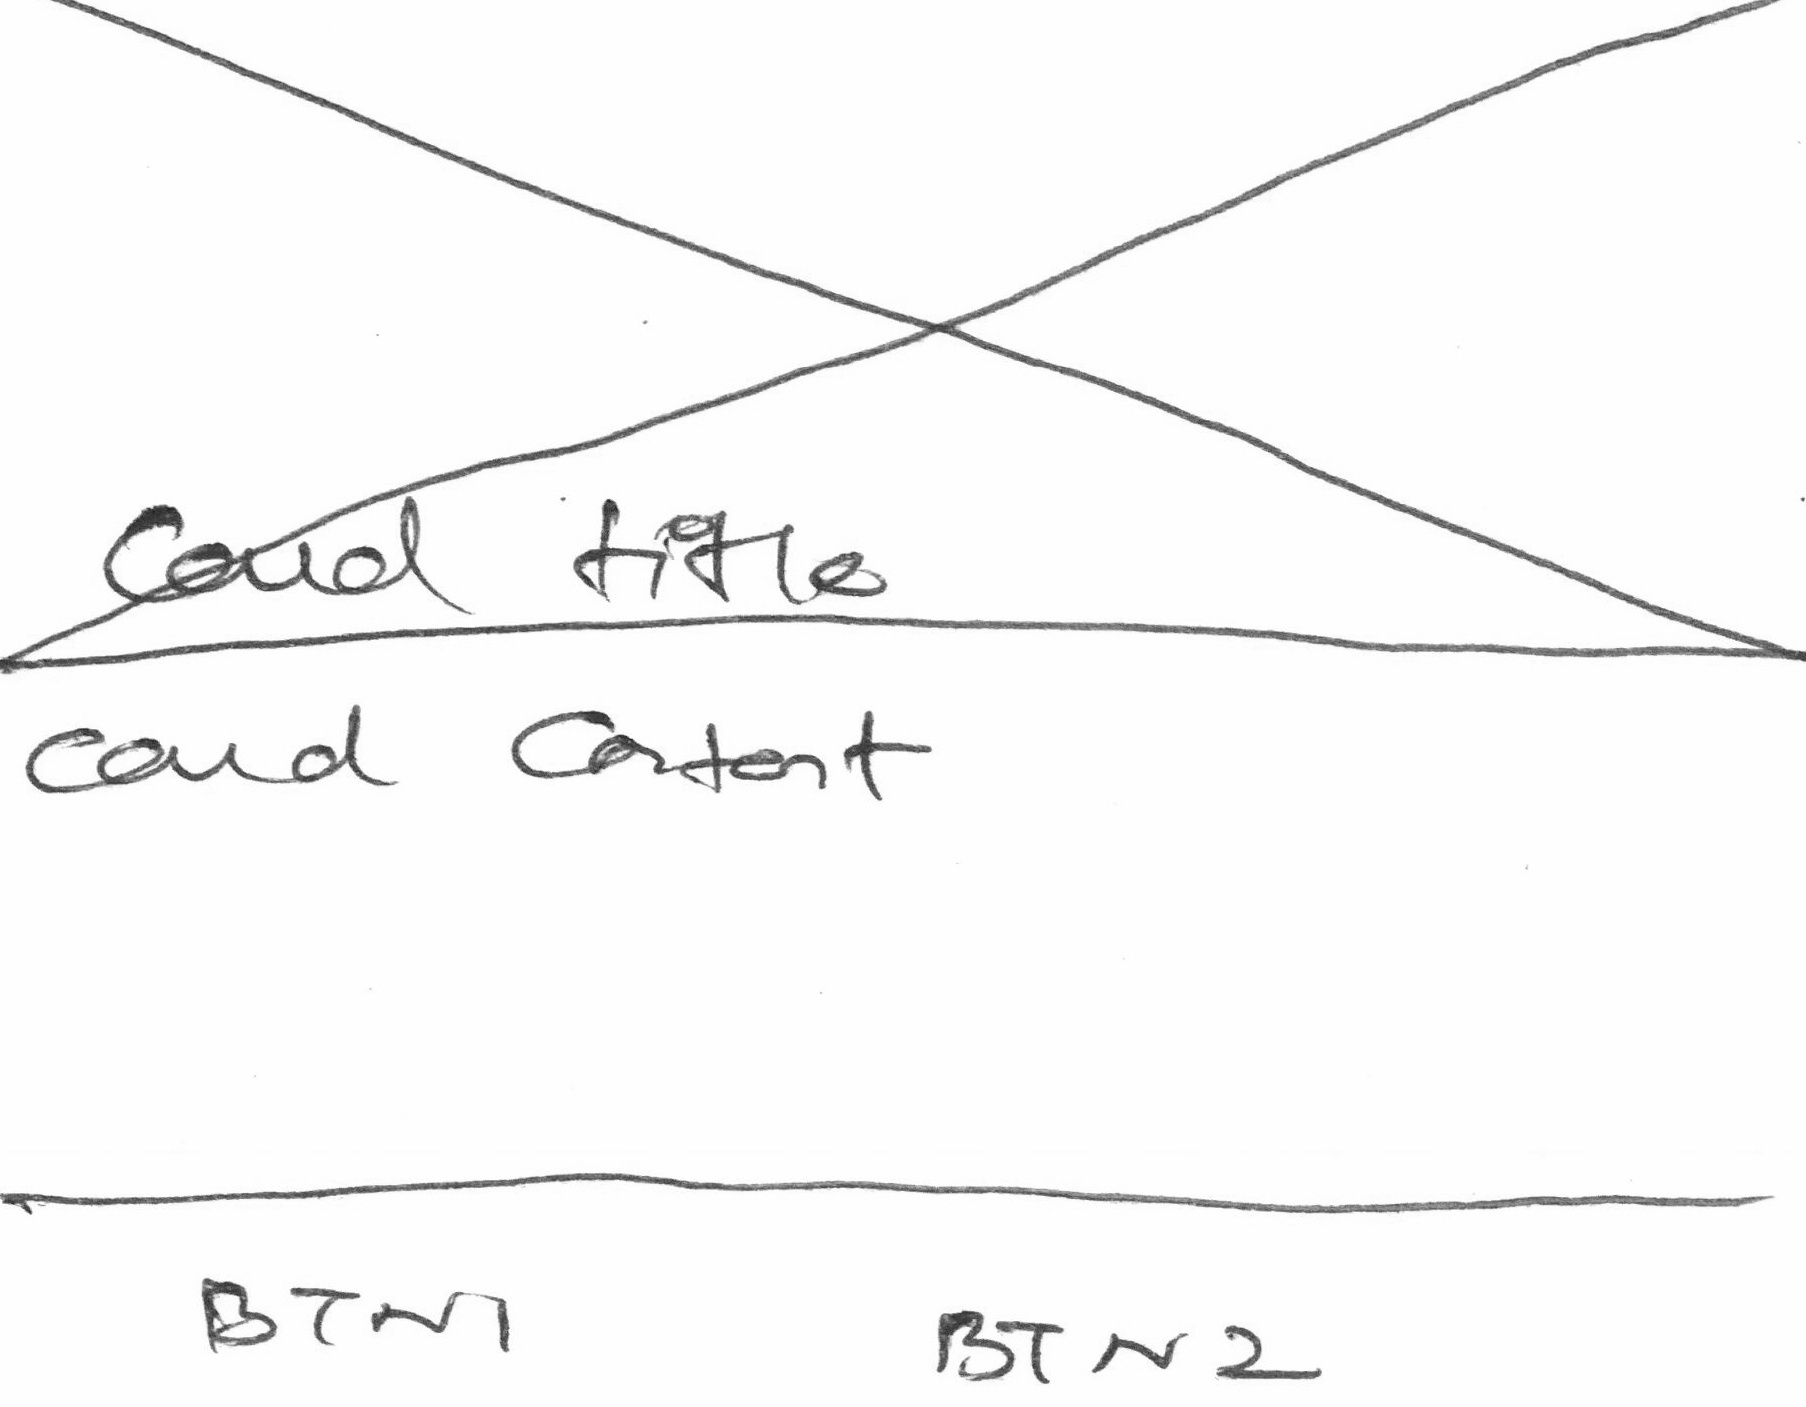 Card title
Card Content
BTN1
BTN 2